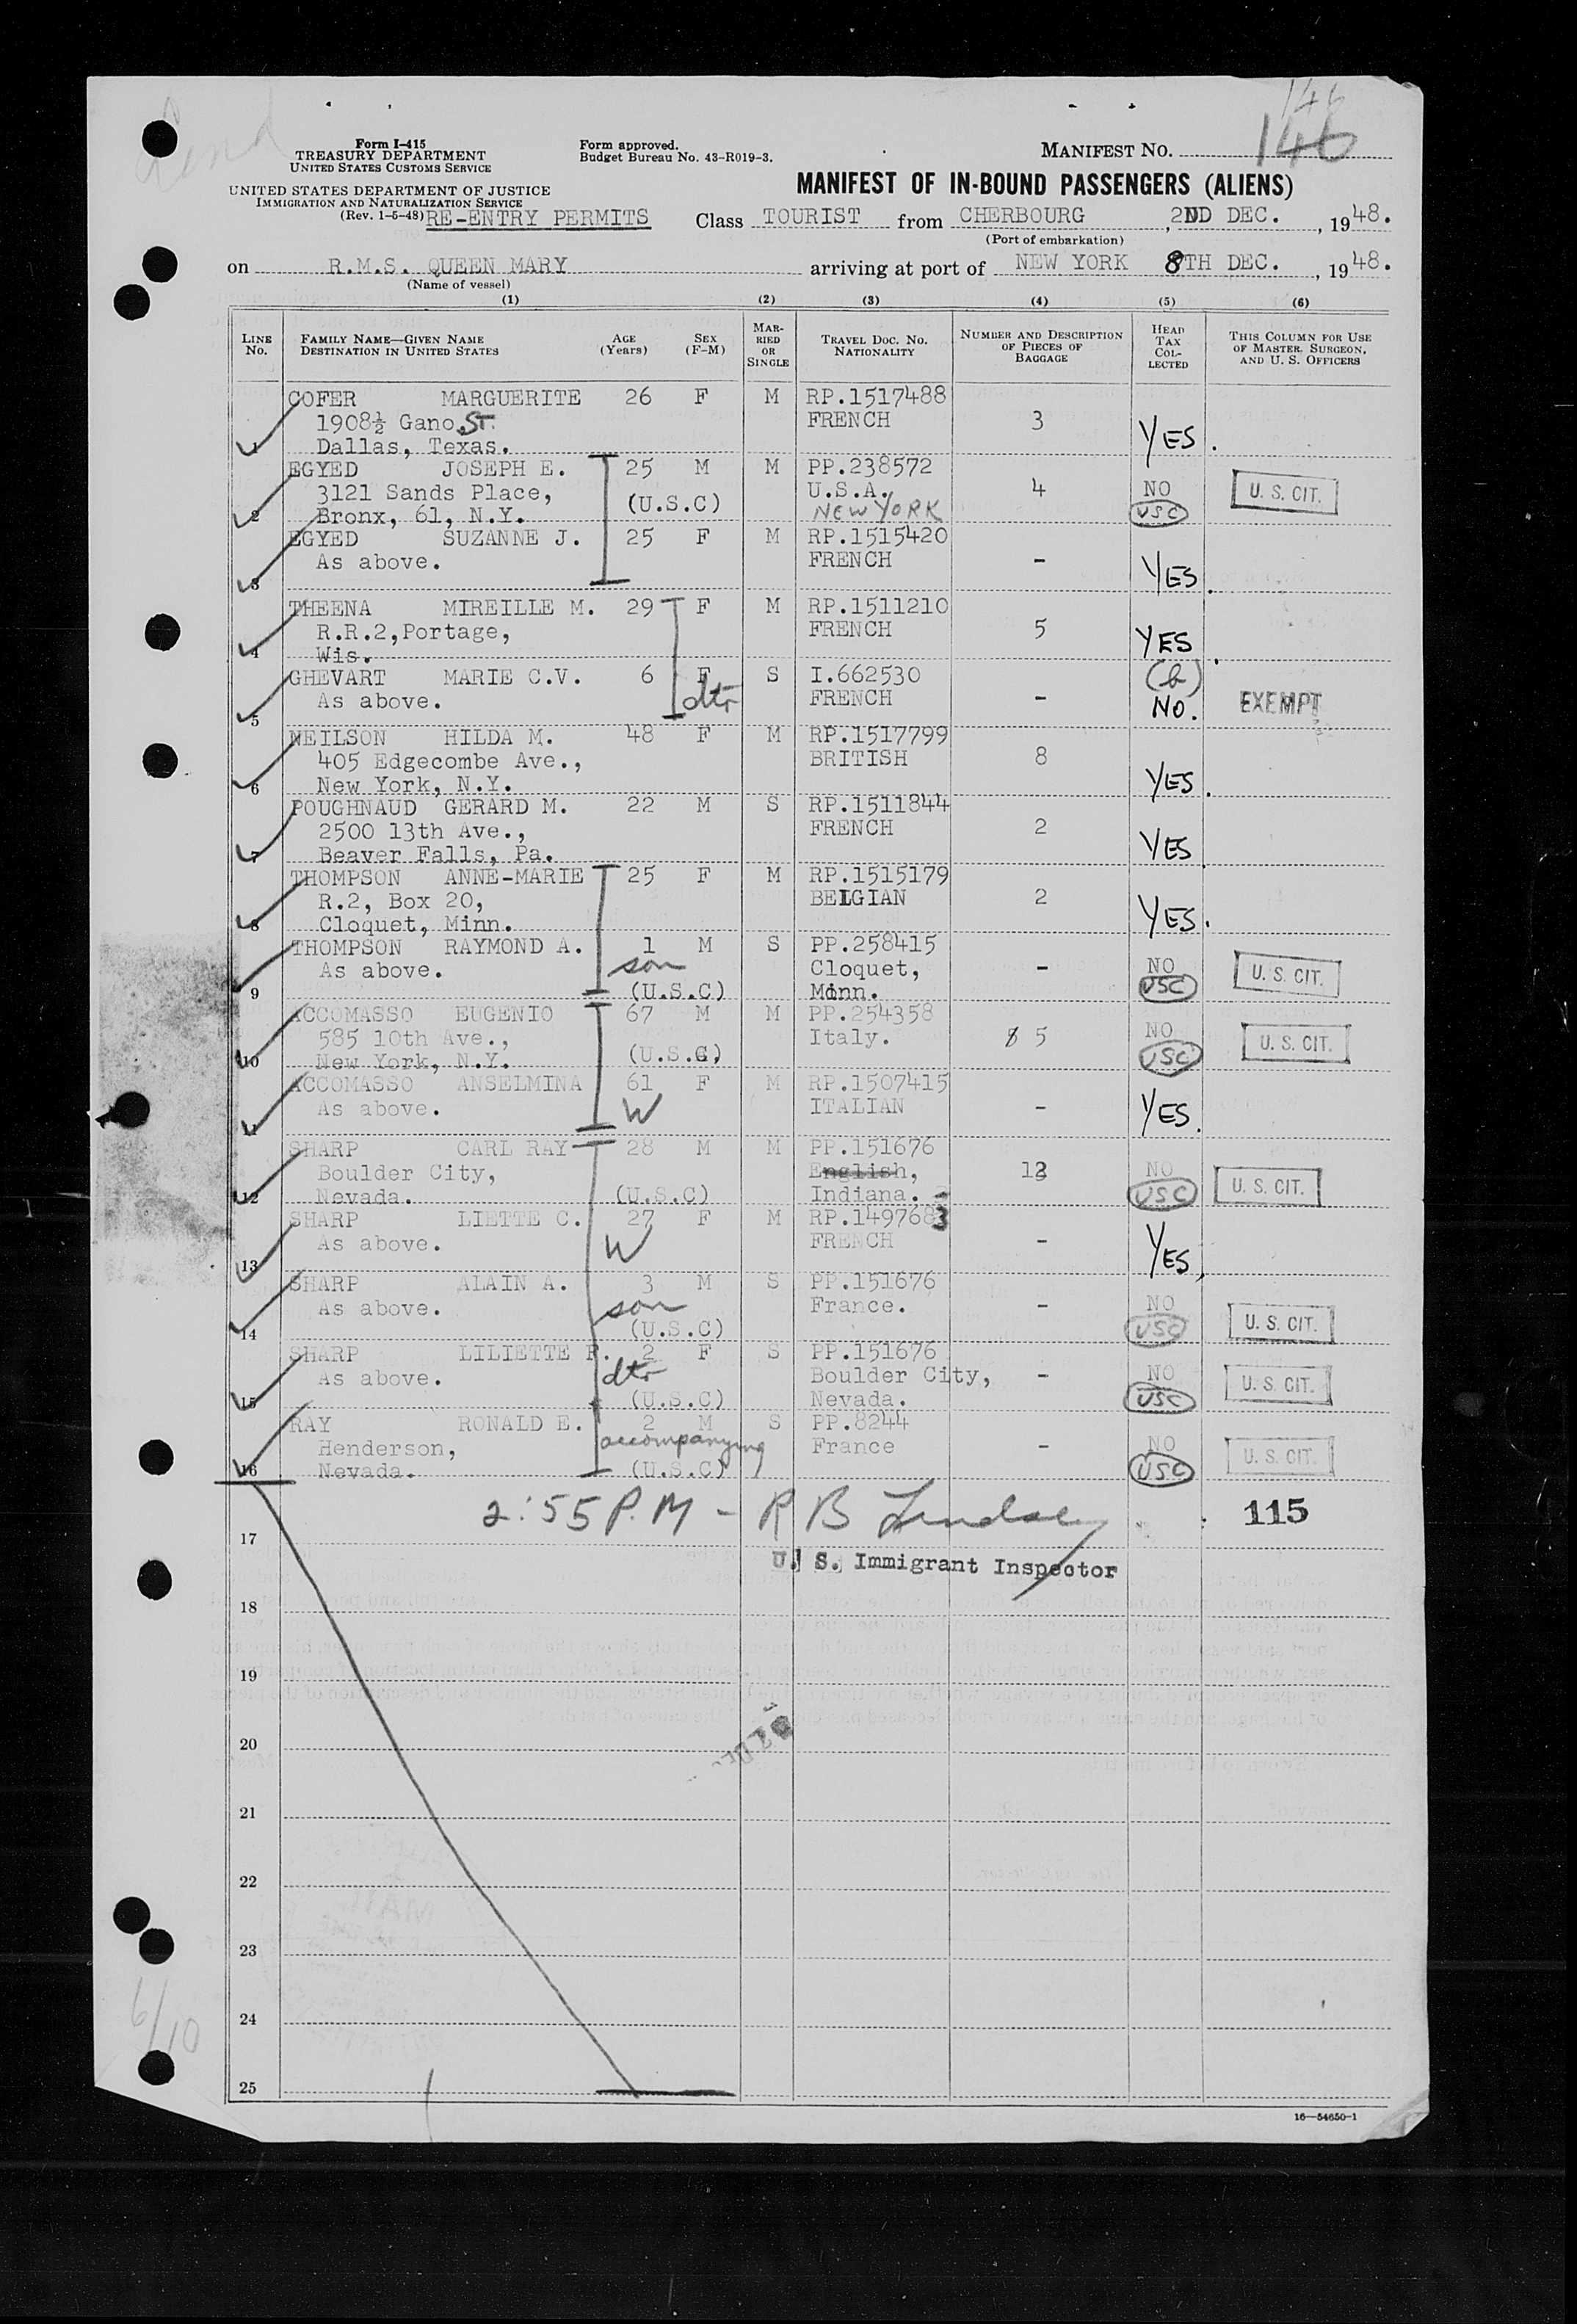 146
146
Form I-415
TREASURY DEPARTMENT
UNITED STATES CUSTOMS SERVICE
Form approved.
Budget Bureau No. 43-R019-3.
MANIFEST NO.
UNITED STATES DEPARTMENT OF JUSTICE
IMMIGRATION AND NATURALIZATION SERVICE
(Rev. 1-5-48) RE-ENTRY PERMITS
MANIFEST OF IN-BOUND PASSENGERS (ALIENS)
Class TOURIST from CHERBOURG, 2ND DEC., 1948.
(Port of embarkation)
on R.M.S. QUEEN MARY arriving at port of NEW YORK 8TH DEC., 1948.
(Name of vessel)
(1) (2) (3) (4) (5) (6)
LINE No.
FAMILY NAME—GIVEN NAME
DESTINATION IN UNITED STATES
AGE (Years)
SEX (F-M)
MARRIED OR SINGLE
TRAVEL DOC. NO.
NATIONALITY
NUMBER AND DESCRIPTION OF PIECES OF BAGGAGE
HEAD TAX COLLECTED
THIS COLUMN FOR USE OF MASTER, SURGEON, AND U. S. OFFICERS
COFER MARGUERITE 26 F M RP.1517488
1908½ Gano St. FRENCH 3
1 Dallas, Texas. YES.
EGYED JOSEPH E. 25 M M PP.238572
3121 Sands Place, (U.S.C) U.S.A. 4 NO U. S. CIT.
2 Bronx, 61, N.Y. NEW YORK USC
EGYED SUZANNE J. 25 F M RP.1515420
As above. FRENCH -
3 YES.
THEENA MIREILLE M. 29 F M RP.1511210
R.R.2,Portage, FRENCH 5
4 Wis. YES.
GHEVART MARIE C.V. 6 F S I.662530 (b)
As above. dtr FRENCH - NO. EXEMPT
5
NEILSON HILDA M. 48 F M RP.1517799
405 Edgecombe Ave., BRITISH 8
6 New York, N.Y. YES.
POUGHNAUD GERARD M. 22 M S RP.1511844
2500 13th Ave., FRENCH 2
7 Beaver Falls, Pa. YES
THOMPSON ANNE-MARIE 25 F M RP.1515179
R.2, Box 20, BELGIAN 2
8 Cloquet, Minn. YES.
THOMPSON RAYMOND A. 1 M S PP.258415
As above. son Cloquet, - NO U. S. CIT.
9 (U.S.C) Minn. USC
ACCOMASSO EUGENIO 67 M M PP.254358
585 10th Ave., Italy. 5 NO U. S. CIT.
10 New York, N.Y. (U.S.C) USC
ACCOMASSO ANSELMINA 61 F M RP.1507415
As above. W ITALIAN - YES.
11
SHARP CARL RAY 28 M M PP.151676
Boulder City, English, 12 NO
12 Nevada. (U.S.C) Indiana. USC U. S. CIT.
SHARP LIETTE C. 27 F M RP.1497683
As above. W FRENCH - YES
13
SHARP ALAIN A. 3 M S PP.151676
As above. son France. - NO
14 (U.S.C) USC U. S. CIT.
SHARP LILIETTE F. 2 F S PP.151676
As above. dtr Boulder City, - NO U. S. CIT.
15 (U.S.C) Nevada. USC
RAY RONALD E. 2 M S PP.8244
Henderson, accompanying France - NO
16 Nevada. (U.S.C) USC U. S. CIT.
2:55 P.M - R B Lindsey 115
17
U. S. Immigrant Inspector
18
19
20
21
22
23
24
25
6/10
16—54650-1